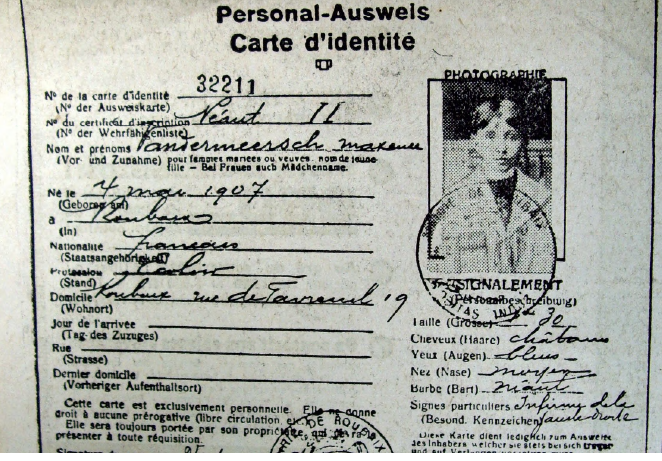 Personal-Ausweis
Carte d'identité
N° de la carte d'identité 32211
(N° der Ausweiskarte)
N° du certificat d'inscription Néant II
(N° der Wehrfähigenliste)
Nom et prénoms Vansermeersch maxence
(Vor- und Zunahme) pour femmes mariées ou veuves, nom de jeune
fille — Bei Frauen auch Mädchenname.
Né le 4 mai 1907
(Geboren am)
à Roubaix
(in)
Nationalité français
(Staatsangehörigkeit)
Profession
(Stand)
Domicile Roubaix rue de 19
(Wohnort)
Jour de l'arrivée
(Tag des Zuzuges)
Rue
(Strasse)
Dernier domicile
(Vorheriger Aufenthaltsort)
Cette carte est exclusivement personnelle. Elle ne donne
droit à aucune prérogative (libre circulation, etc.)
Elle sera toujours portée par son propriétaire, qui devra
présenter à toute réquisition.
PHOTOGRAPHIE
SIGNALEMENT
(Personalbeschreibung)
Taille (Grösse) 30
Cheveux (Haare) châtains
Yeux (Augen) bleus
Nez (Nase) moyen
Barbe (Bart) néant
Signes particuliers Infirme de la
(Besond. Kennzeichen) droite
Diese Karte dient lediglich zum Ausweise
des Inhabers welcher sie stets bei sich tragen
DE ROUBAIX